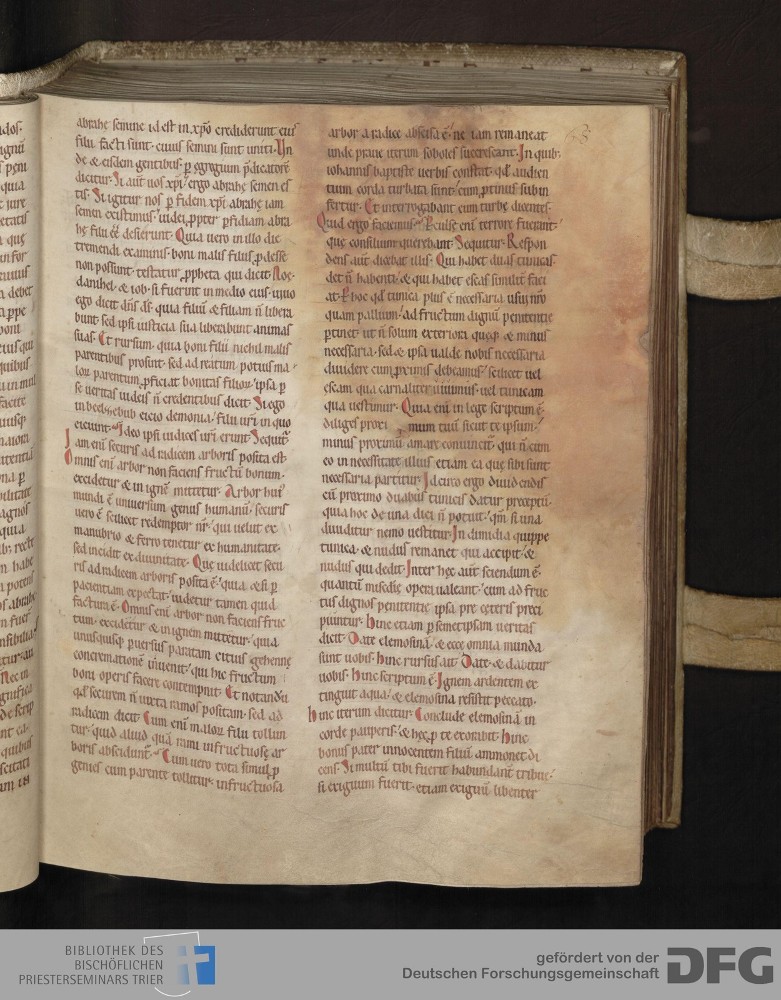 abrahę semine id est in xpo crediderunt eius
filii facti sunt. cuius semini sunt uniti. Un
de & eisdem gentibus p egregium pdicatorē
dicitur. Si aut uos xpi. ergo abrahę semen es
tis. Si igitur nos p fidem xpi abrahę iam
semen existimus. iudei ppter pfidiam abra
hę filii eē desierunt. Quia uero in illo die
tremendi examinis. boni malis filiis pdesse
non possunt. testatur ppheta qui dicit. Noe.
danihel. & iob. si fuerint in medio eius. uiuo
ego dicit dns ds. quia filiū & filiam n libera
bunt. sed ipsi iusticia sua liberabunt animas
suas. Et rursum. quia boni filii nichil malis
parentibus prosint. sed ad reatum potius ma
lor parentum pficiat bonitas filior. ipsa p
se ueritas iudeis n credentibus dicit. Si ego
in beelzebub eicio demonia. filii uri in quo
eiciunt. Ideo ipsi iudices uri erunt. Sequit.
Iam eni securis ad radicem arboris posita est.
Omnis eni arbor non faciens fructū bonum.
excidetur & in igne mittetur. Arbor hui
mundi ē uniuersum genus humanū. securis
uero ē scilicet redemptor nr. qui uelut ex
manubrio & ferro tenetur ex humanitate.
sed incidit ex diuinitate. Que uidelicet secu
ris ad radicem arboris posita ē. quia & si p
pacientiam expectat. uidetur tamen quid
factura ē. Omnis eni arbor non faciens fruc
tum. excidetur & in ignem mittetur. quia
unusquisq puersus paratam citius gehennę
concremationē inuenit. qui hic fructum
boni operis facere contempnit. Et notandū
qd securem n iuxta ramos positam. sed ad
radicem dicit. Cum eni malor filii tollun
tur. quid aliud quā rami infructuosę ar
boris absciduntur. Cum uero tota simul p
genies cum parente tollitur. infructuosa
arbor a radice abscisa ē. ne iam remaneat
unde praue iterum soboles succrescant. In quib;
iohannis baptiste uerbis constat. qd audien
tium corda turbata sunt. cum ptinus subin
fertur. Et interrogabant eum turbę dicentes.
Quid ergo faciemus. Pculse eni terrore fuerant.
quę consilium querebant. Sequitur. Respon
dens aut dicebat illis. Qui habet duas tunicas
det n habenti. & qui habet escas similit faci
at. P hoc qd tunica plus ē necessaria usui nro
quam pallium. ad fructum dignū penitentie
ptinet. ut n solum exteriora quęq & minus
necessaria. sed & ipsa ualde nobis necessaria
diuidere cum pximis debeamus. scilicet uel
escam qua carnaliter uiuimus. uel tunicam
qua uestimur. Quia eni in lege scriptum ē.
diliges proxi mum tuū sicut te ipsum.
minus proximū amare conuincit. qui n cum
eo in necessitate illius etiam ea que sibi sunt
necessaria partitur. Idcirco ergo diuidendis
cū proximo duabus tunicis datur preceptū.
quia hoc de una dici n potuit. qm si una
diuiditur nemo uestitur. In dimidia quippe
tunica. & nudus remanet qui accipit. &
nudus qui dedit. Inter hęc aut sciendum ē.
quantū misedię opera ualeant. cum ad fruc
tus dignos penitentię ipsa pre ceteris preci
piuntur. Hinc etiam p semetipsam ueritas
dicit. Date elemosinā. & ecce omnia munda
sunt uobis. Hinc rursus ait. Date. & dabitur
uobis. Hinc scriptum ē. Ignem ardentem ex
tinguit aqua. & elemosina resistit peccato.
Hinc iterum dicitur. Conclude elemosinā in
corde pauperis. & hęc p te exorabit. Hinc
bonus pater innocentem filiū ammonet di
cens. Si multū tibi fuerit habundant tribue.
si exiguum fuerit. etiam exiguū libenter
BIBLIOTHEK DES
BISCHÖFLICHEN
PRIESTERSEMINARS TRIER
gefördert von der
Deutschen Forschungsgemeinschaft
DFG